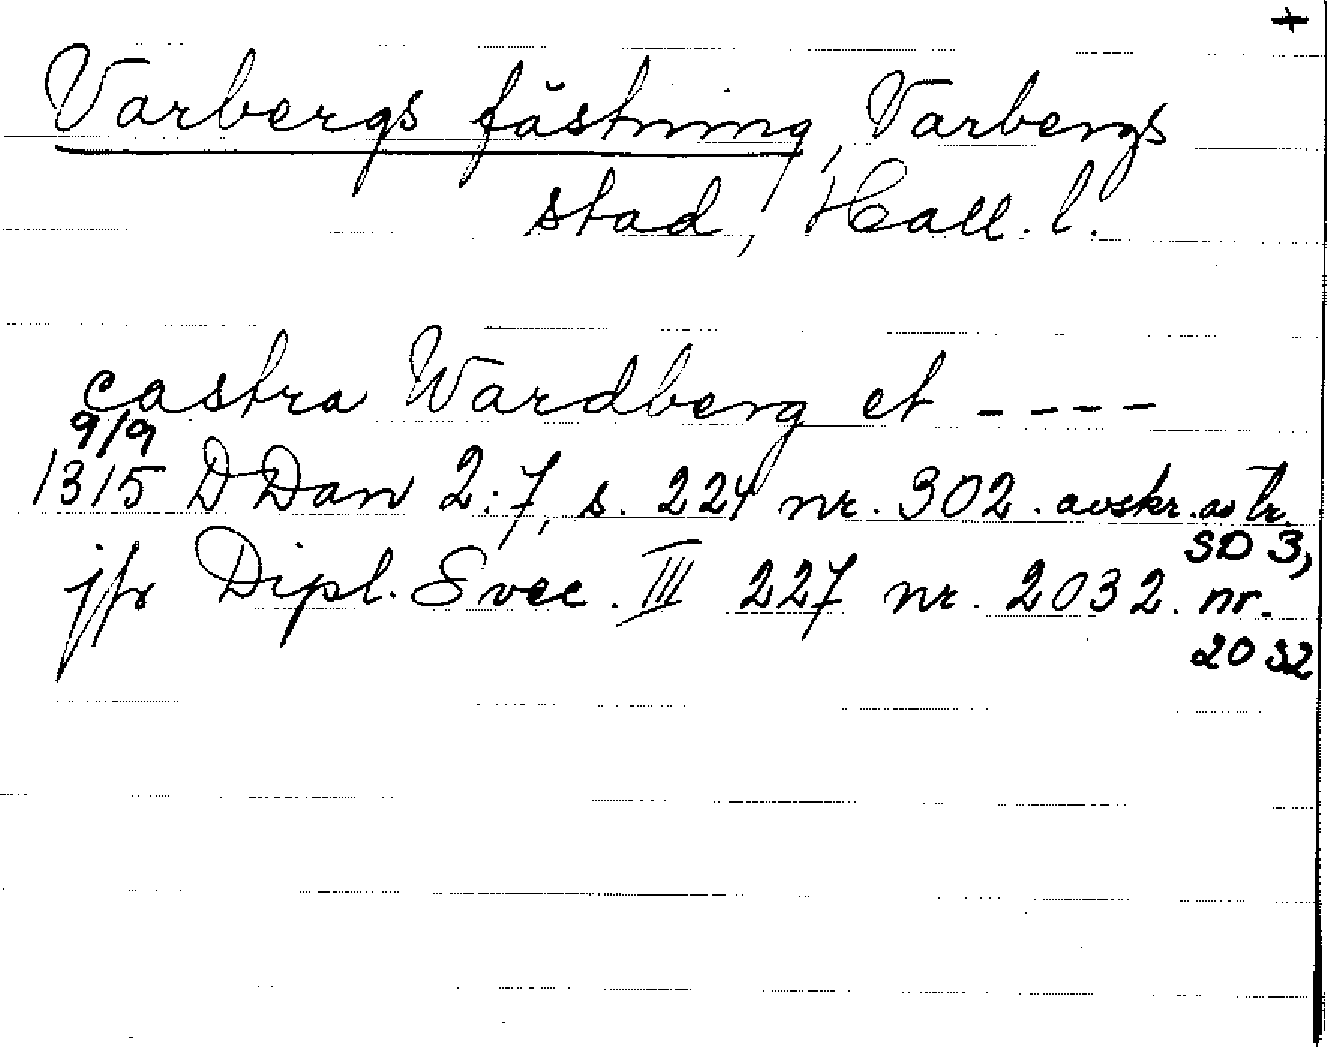 +
Varbergs fästning, Varbergs
stad, Hall. l.
castra Wardberg et ----
9/9
1315 DDan 2:7, s. 224 nr. 302. avskr. av tr.
SD 3,
jfr Dipl. Svec. III 227 nr. 2032. nr.
2032